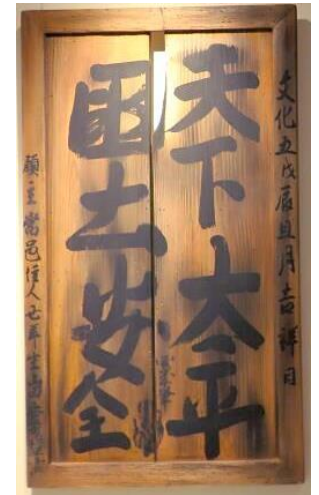 文化五戊辰且月吉祥日
天下大平
国土安全
願主當邑住人